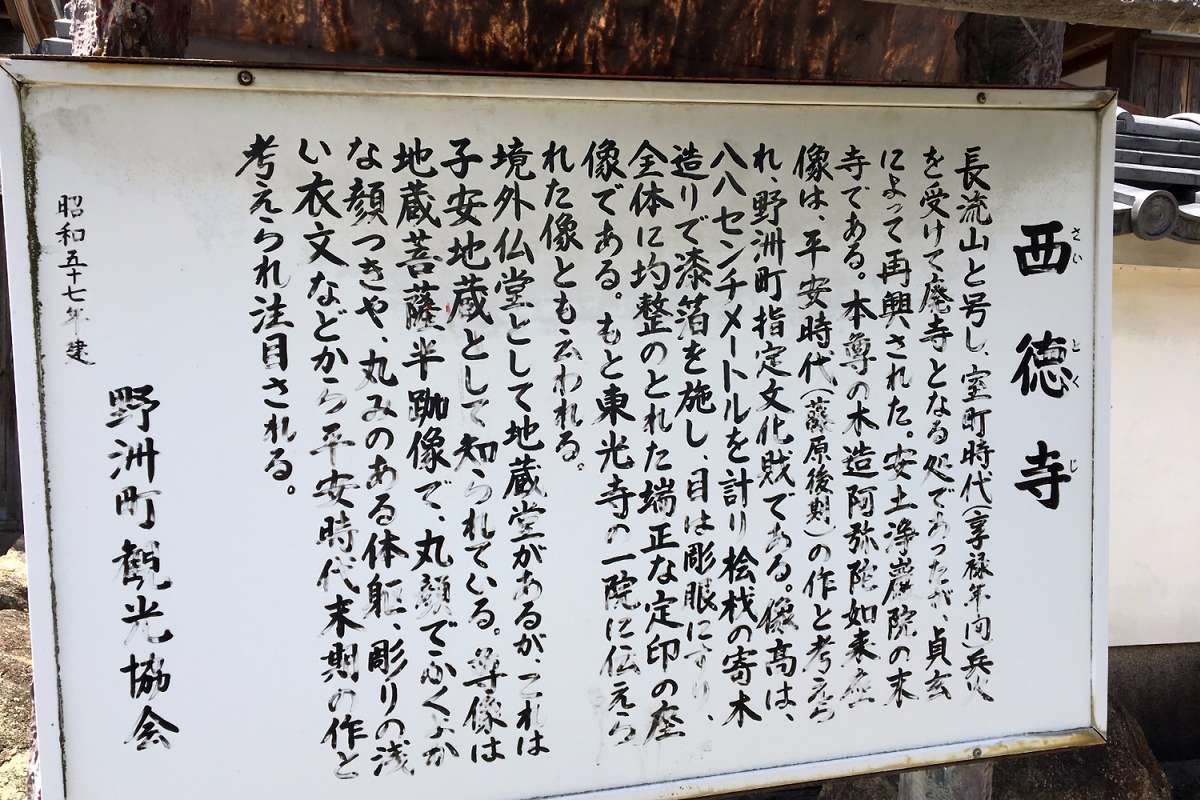 西徳寺
さいとくじ
長流山と号し、室町時代(享禄年间)兵火
を受けて廃寺となる処であったが、貞玄
によって再興された。安土浄厳院の末
寺である。本尊の木造阿弥陀如来座
像は、平安時代(藤原後期)の作と考えら
れ、野洲町指定文化財である。像高は、
八八センチメートルを計り桧材の寄木
造りで漆箔を施し、目は彫眼にすり、
全体に均整のとれた端正な定印の座
像である。もと東光寺の一院に伝えら
れた像とも云われる。
境外仏堂として地蔵堂があるが、これは
子安地蔵として知られている。尊像は
地蔵菩薩半跏像で、丸顔でふくよか
な顔つきや、丸みのある体躯、彫りの浅
い衣文などから平安時代末期の作と
考えられ注目される。
昭和五十七年建
野洲町観光協会